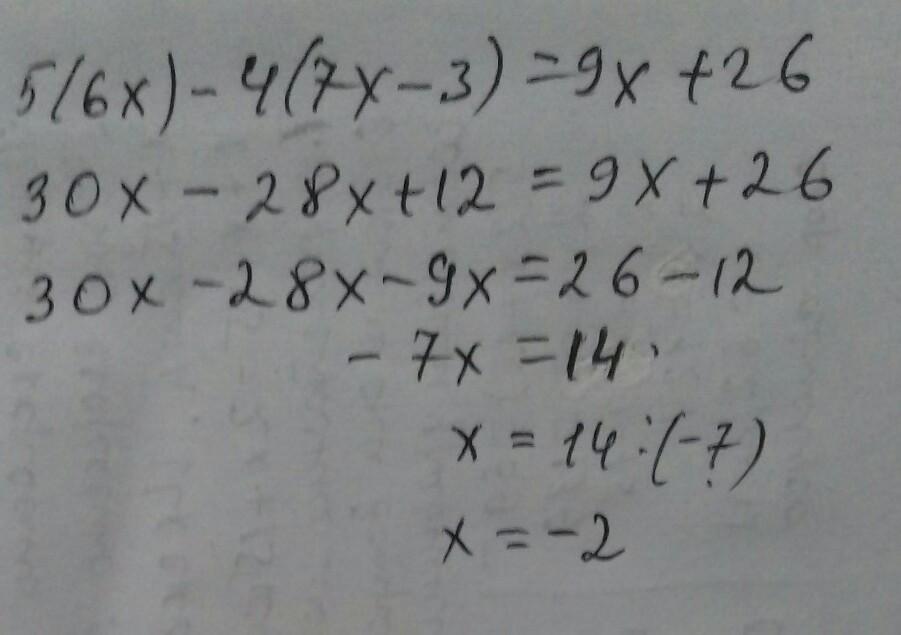 5(6x)-4(7x-3)=9x+26
30x-28x+12=9x+26
30x-28x-9x=26-12
-7x=14
x=14:(-7)
x=-2